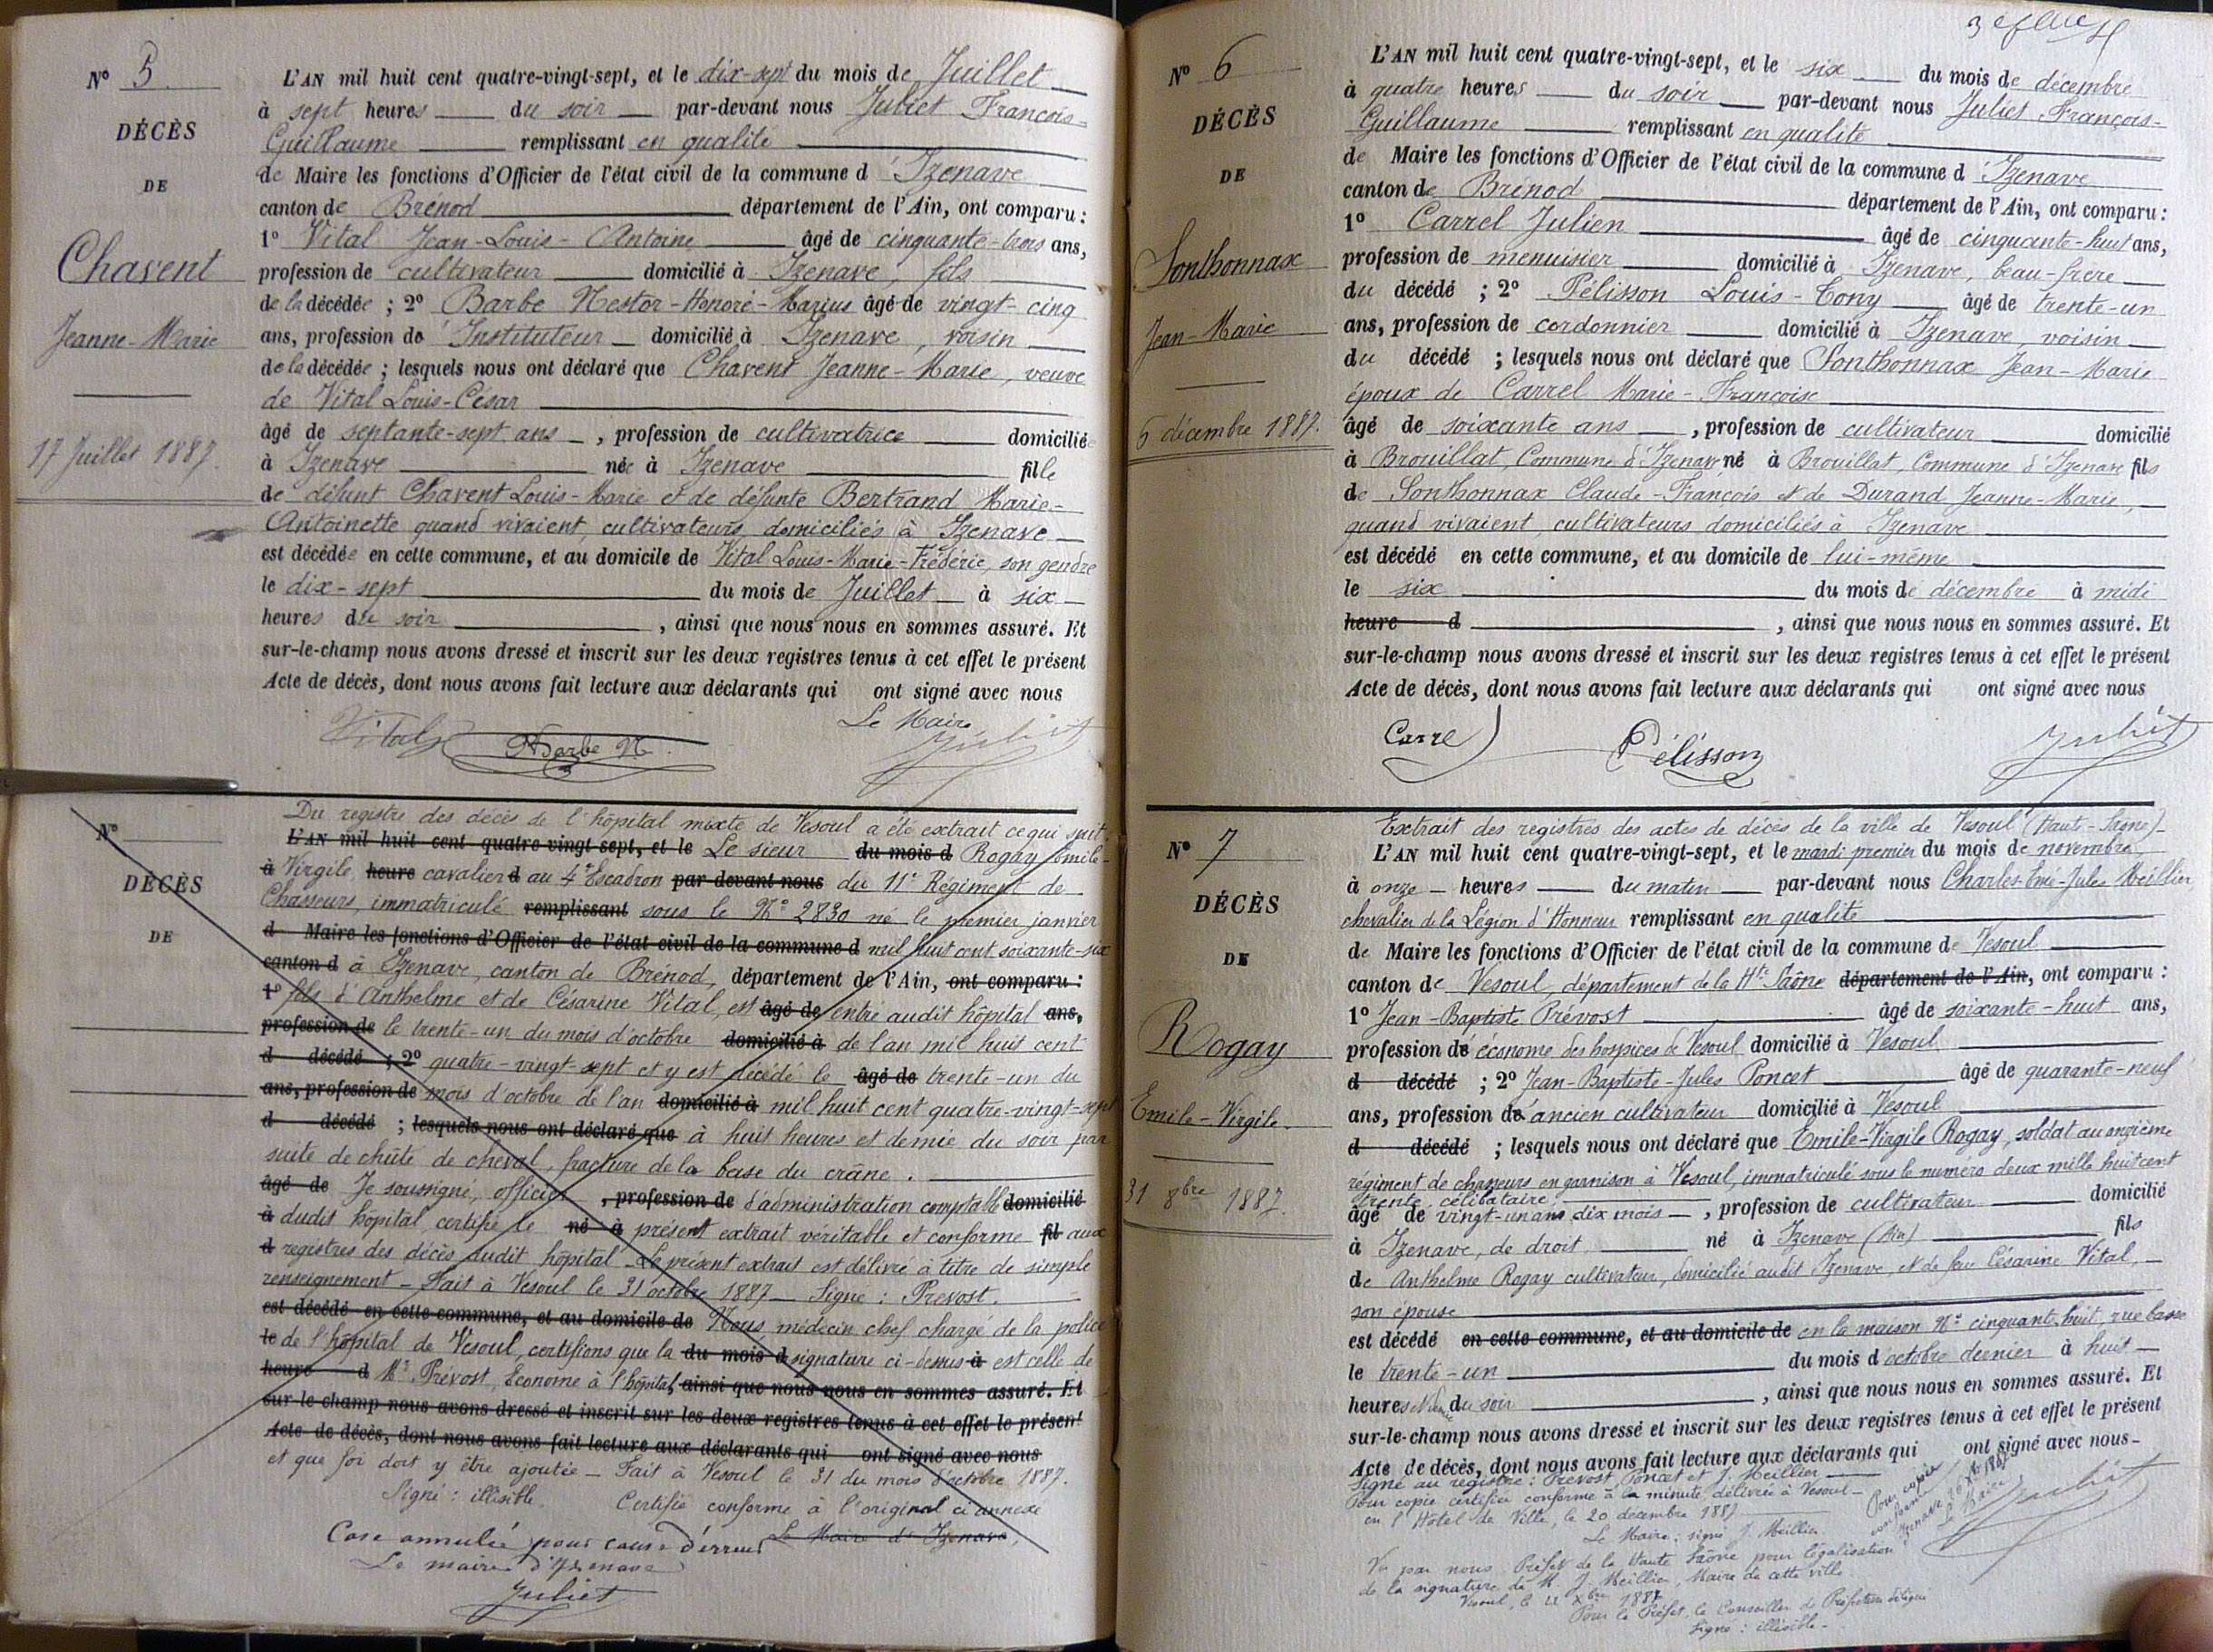 N° 5
DÉCÈS
DE
Chavent
Jeanne-Marie
17 Juillet 1887.
L'AN mil huit cent quatre-vingt-sept, et le dix-sept du mois de Juillet
à sept heures du soir par-devant nous Juliet François-
Guillaume remplissant en qualité
de Maire les fonctions d'Officier de l'état civil de la commune d'Izenave
canton de Brénod département de l'Ain, ont comparu :
1° Vital Jean-Louis-Antoine âgé de cinquante-trois ans,
profession de cultivateur domicilié à Izenave, fils
de la décédée ; 2° Barbe Nestor-Honoré-Marius âgé de vingt-cinq
ans, profession d'Instituteur domicilié à Izenave, voisin
de la décédée ; lesquels nous ont déclaré que Chavent Jeanne-Marie, veuve
de Vital Louis-César
âgé de septante-sept ans, profession de cultivatrice domiciliée
à Izenave née à Izenave fille
de défunt Chavent Louis-Marie et de défunte Bertrand Marie-
Antoinette quand vivaient, cultivateurs, domiciliés à Izenave
est décédée en cette commune, et au domicile de Vital Louis-Marie-Frédéric, son gendre
le dix-sept du mois de Juillet à six
heures du soir, ainsi que nous nous en sommes assuré. Et
sur-le-champ nous avons dressé et inscrit sur les deux registres tenus à cet effet le présent
Acte de décès, dont nous avons fait lecture aux déclarants qui ont signé avec nous
Le Maire
Vital Barbe N. Juliet
N°
DÉCÈS
DE
Du registre des décès de l'hôpital mixte de Vesoul a été extrait ce qui suit :
L'AN mil huit cent quatre-vingt-sept, et le Le sieur du mois d Rogay Emile-
à Virgile, heure cavalier d au 4e Escadron par-devant nous du 11e Régiment de
Chasseurs, immatriculé remplissant sous le N° 2830 né le premier janvier
d Maire les fonctions d'Officier de l'état civil de la commune d mil huit cent soixante-six
canton d à Izenave, canton de Brénod, département de l'Ain, ont comparu :
1° fils d'Anthelme et de Césarine Vital, est âgé de entré audit hôpital ans,
profession de le trente-un du mois d'octobre domicilié à de l'an mil huit cent
d décédé ; 2° quatre-vingt-sept et y est décédé le âgé de trente-un du
ans, profession de mois d'octobre de l'an domicilié à mil huit cent quatre-vingt-sept
d décédé ; lesquels nous ont déclaré que à huit heures et demie du soir par
suite de chûte de cheval, fracture de la base du crâne.
âgé de Je soussigné, officier, profession de d'administration comptable domicilié
à dudit hôpital, certifie le né à présent extrait véritable et conforme fil aux
d registres des décès dudit hôpital. Le présent extrait est délivré à titre de simple
renseignement - Fait à Vesoul le 31 octobre 1887 - Signé : Prevost.
est décédé en cette commune, et au domicile de Nous, médecin chef chargé de la police
le de l'hôpital de Vesoul, certifions que la du mois d signature ci-dessus à est celle de
heure d Mr Prévost, Econome à l'hôpital, ainsi que nous nous en sommes assuré. Et
sur-le-champ nous avons dressé et inscrit sur les deux registres tenus à cet effet le présent
Acte de décès, dont nous avons fait lecture aux déclarants qui ont signé avec nous
et que foi doit y être ajoutée - Fait à Vesoul le 31 du mois d'octobre 1887.
Signé : illisible. Certifié conforme à l'original ci annexé
Case annulée pour cause d'erreur Le Maire de Izenave,
Le maire d'Izenave
Juliet
N° 6
DÉCÈS
DE
Sonthonnax
Jean-Marie
6 décembre 1887.
L'AN mil huit cent quatre-vingt-sept, et le six du mois de décembre
à quatre heures du soir par-devant nous Juliet François-
Guillaume remplissant en qualité
de Maire les fonctions d'Officier de l'état civil de la commune d'Izenave
canton de Brénod département de l'Ain, ont comparu :
1° Carrel Julien âgé de cinquante-huit ans,
profession de menuisier domicilié à Izenave, beau-frère
du décédé ; 2° Pélisson Louis-Tony âgé de trente-un
ans, profession de cordonnier domicilié à Izenave, voisin
du décédé ; lesquels nous ont déclaré que Sonthonnax Jean-Marie
époux de Carrel Marie-Françoise
âgé de soixante ans, profession de cultivateur domicilié
à Brouillat, Commune d'Izenave né à Brouillat, Commune d'Izenave fils
de Sonthonnax Claude-François et de Durand Jeanne-Marie,
quand vivaient, cultivateurs domiciliés à Izenave
est décédé en cette commune, et au domicile de lui-même
le six du mois de décembre à midi
heure d, ainsi que nous nous en sommes assuré. Et
sur-le-champ nous avons dressé et inscrit sur les deux registres tenus à cet effet le présent
Acte de décès, dont nous avons fait lecture aux déclarants qui ont signé avec nous
Carrel Pélisson Juliet
N° 7
DÉCÈS
DE
Rogay
Emile-Virgile
31 8bre 1887.
Extrait des registres des actes de décès de la ville de Vesoul (Haute-Saône)
L'AN mil huit cent quatre-vingt-sept, et le mardi premier du mois de novembre
à onze heures du matin par-devant nous Charles-Emé-Jules Meillier,
chevalier de la Légion d'Honneur remplissant en qualité
de Maire les fonctions d'Officier de l'état civil de la commune de Vesoul
canton de Vesoul, département de la Hte Saône département de l'Ain, ont comparu :
1° Jean-Baptiste Prévost âgé de soixante-huit ans,
profession d'économe des hospices de Vesoul domicilié à Vesoul
d décédé ; 2° Jean-Baptiste-Jules Poncet âgé de quarante-neuf
ans, profession d'ancien cultivateur domicilié à Vesoul
d décédé ; lesquels nous ont déclaré que Emile-Virgile Rogay, soldat au onzième
régiment de chasseurs en garnison à Vesoul, immatriculé sous le numéro deux mille huit cent
trente, célibataire,
âgé de vingt-un ans dix mois, profession de cultivateur domicilié
à Izenave, de droit, né à Izenave (Ain) fils
de Anthelme Rogay cultivateur, domicilié audit Izenave, et de feu Césarine Vital,
son épouse
est décédé en cette commune, et au domicile de en la maison N° cinquante-huit, rue basse
le trente-un du mois d octobre dernier à huit
heures et demie du soir, ainsi que nous nous en sommes assuré. Et
sur-le-champ nous avons dressé et inscrit sur les deux registres tenus à cet effet le présent
Acte de décès, dont nous avons fait lecture aux déclarants qui ont signé avec nous-
Signé au registre : Prévost, Poncet et J. Meillier
Pour copie certifiée conforme à la minute, délivrée à Vesoul
en l'Hôtel de Ville, le 20 décembre 1887
Le Maire : signé J. Meillier.
Vu par nous Préfet de la Haute Saône pour légalisation
de la signature de M. J. Meillier, Maire de cette ville
Vesoul, le 21 Xbre 1887
Pour le Préfet, le Conseiller de Préfecture délégué
signé : illisible.-
Pour copie
conforme
Izenave 26 Xbre 1887
Le Maire,
Juliet